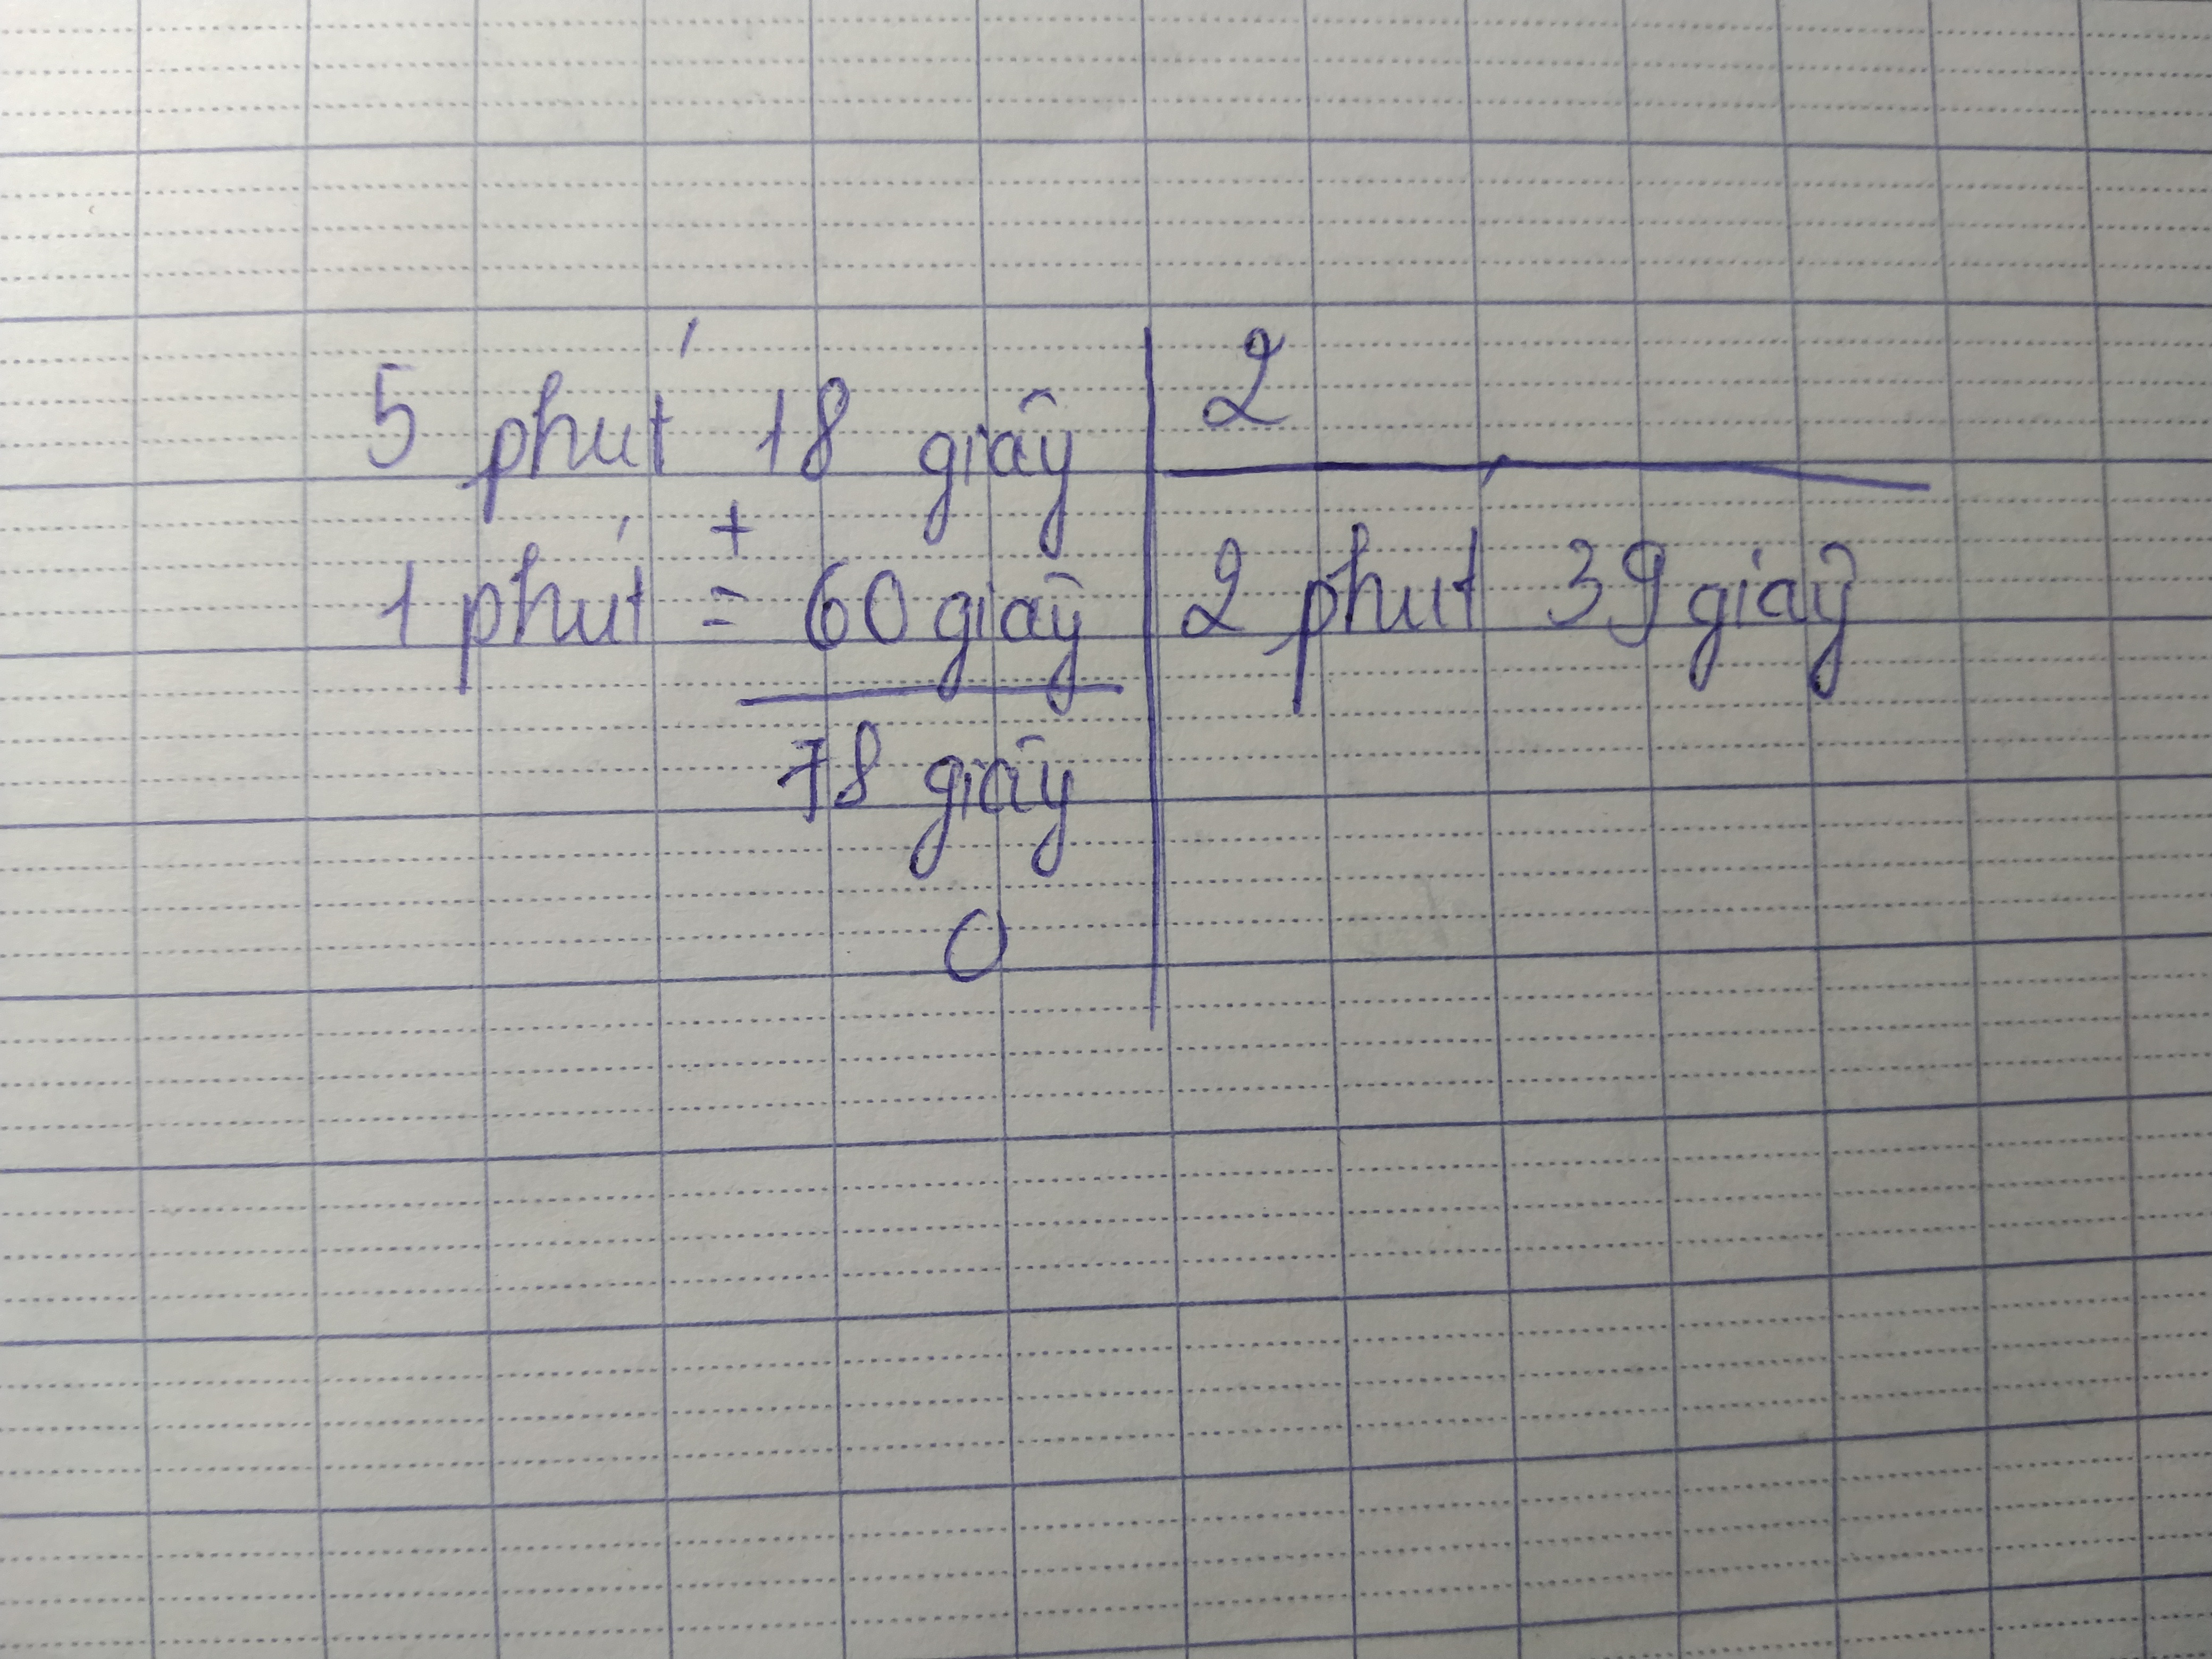 5 phút 18 giây | 2
+
1 phút = 60 giây | 2 phút 39 giây
78 giây
0